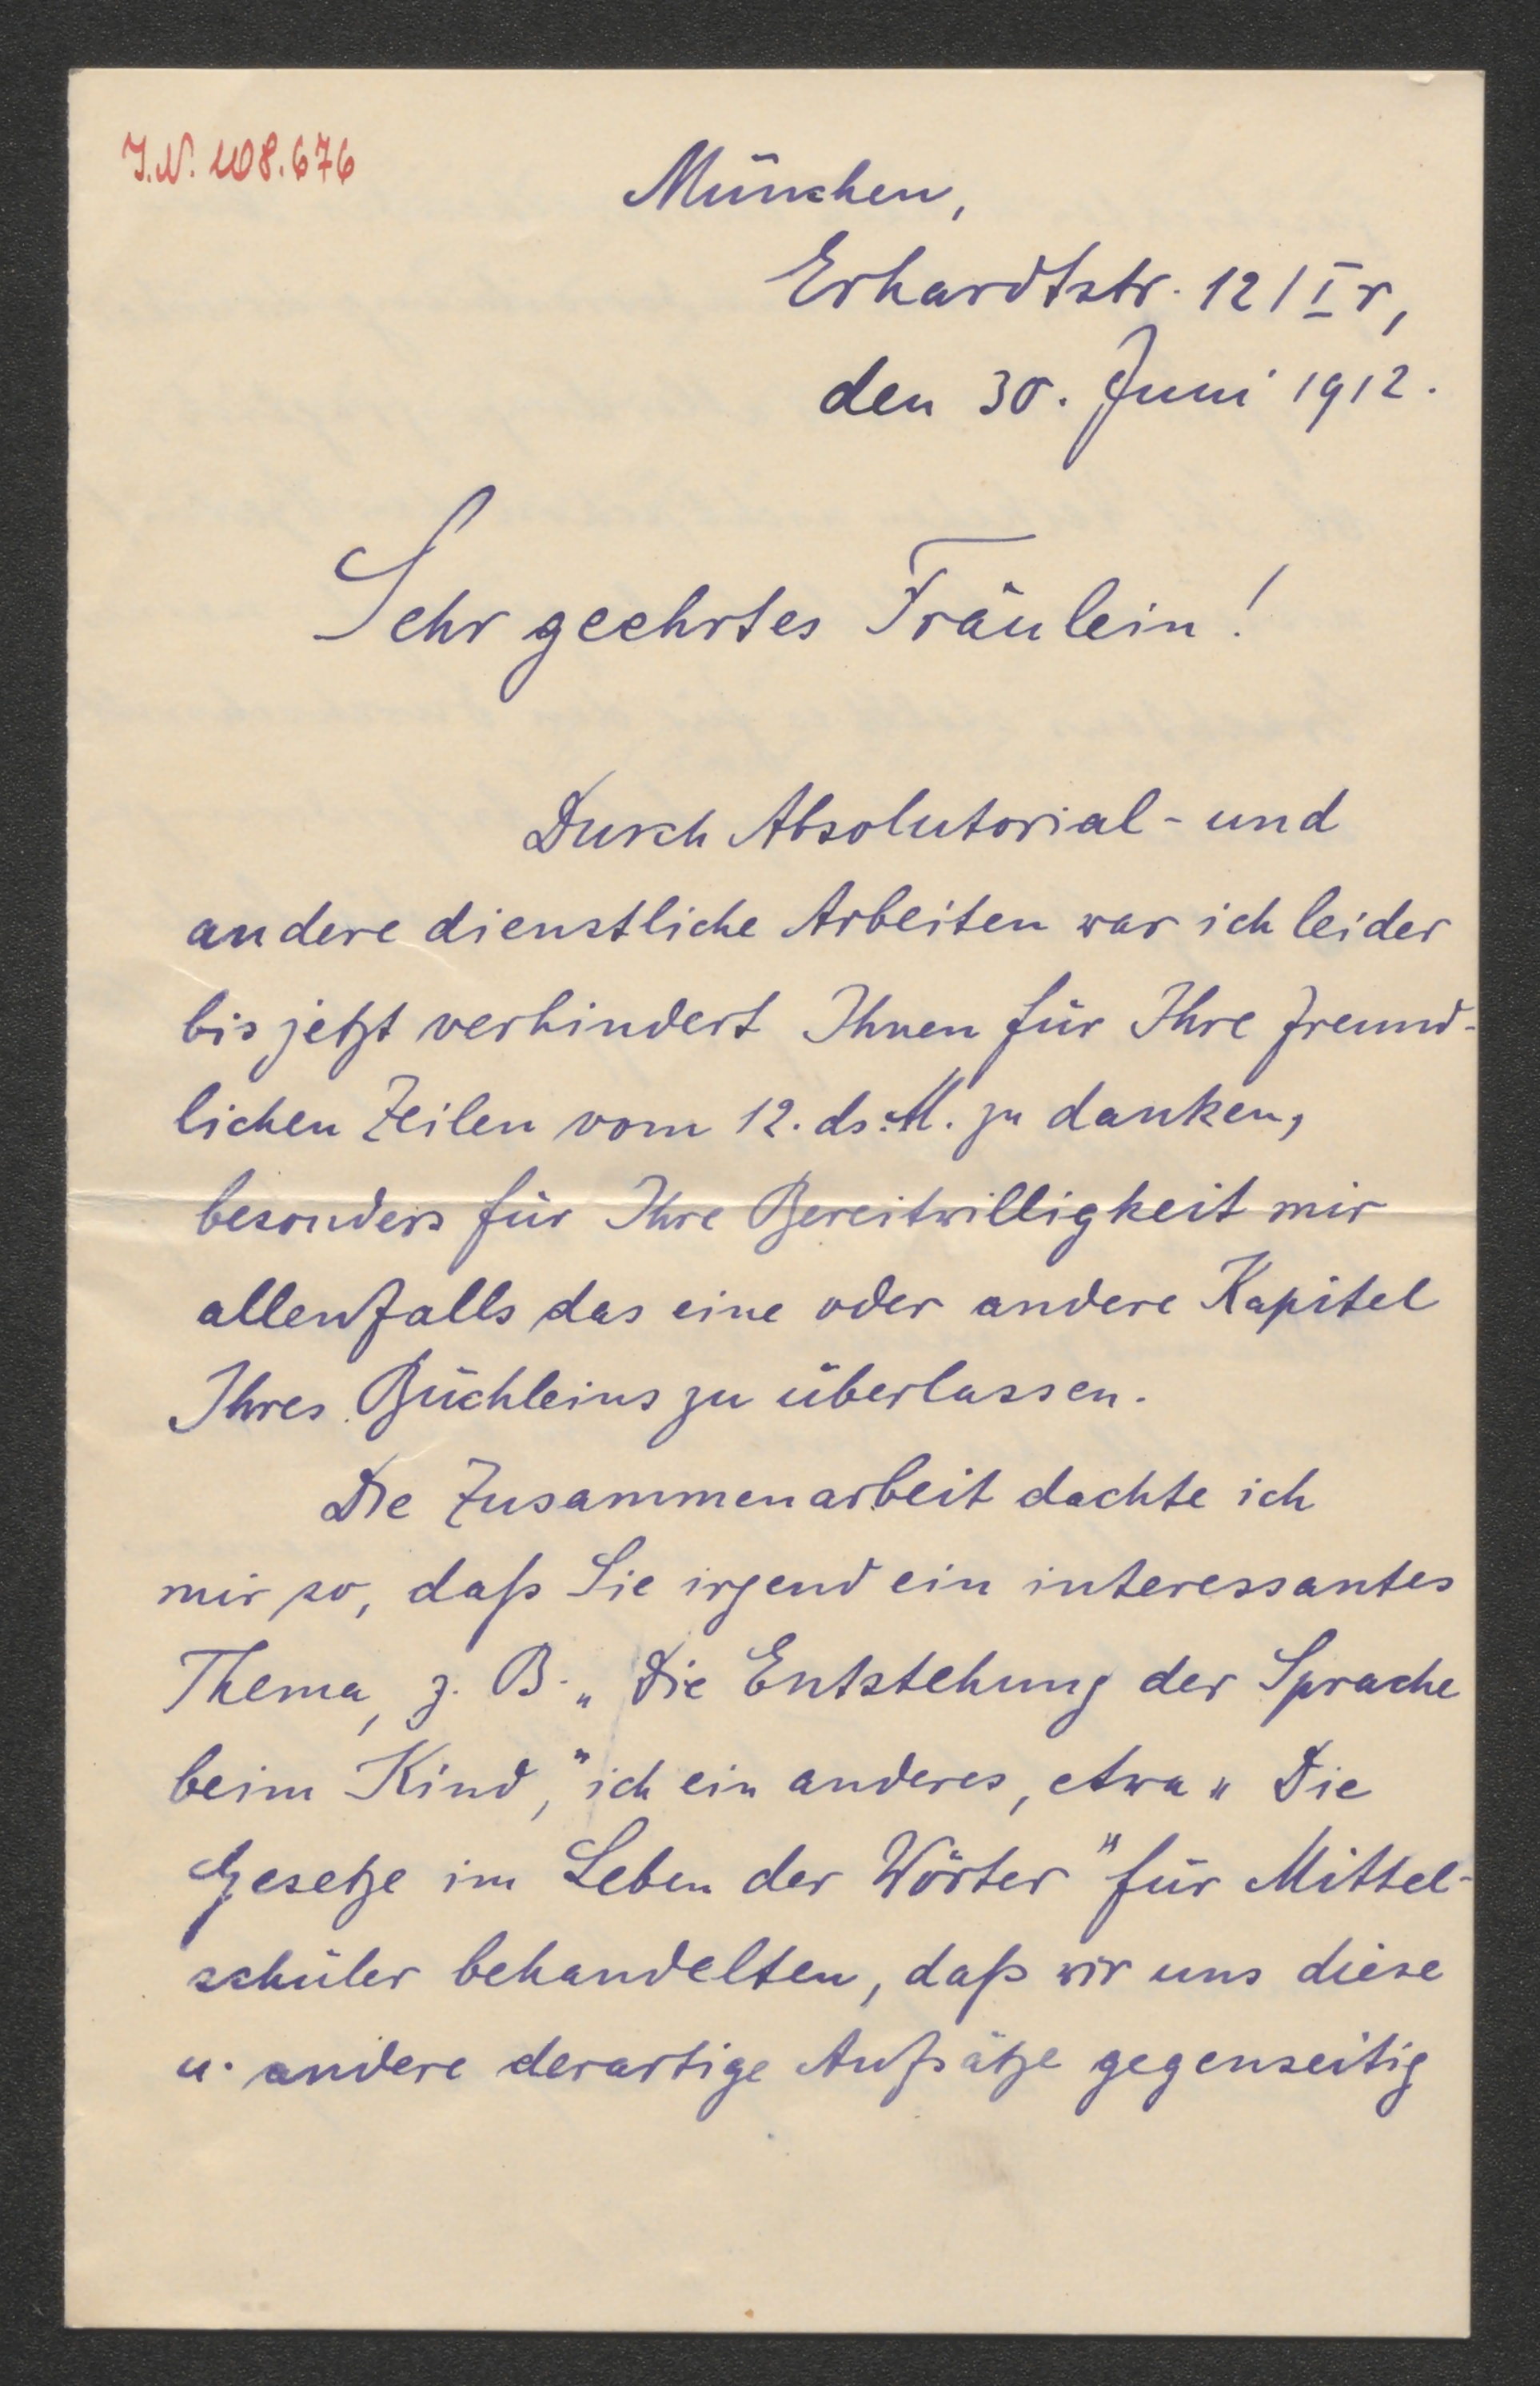 J.N. 108.676
München,
Erhardtstr. 12/I r,
den 30. Juni 1912.
Sehr geehrtes Fräulein!
Durch Absolutorial- und
andere dienstliche Arbeiten war ich leider
bis jetzt verhindert Ihnen für Ihre freund-
lichen Zeilen vom 12. ds. M. zu danken,
besonders für Ihre Bereitwilligkeit mir
allenfalls das eine oder andere Kapitel
Ihres Büchleins zu überlassen.
Die Zusammenarbeit dachte ich
mir so, daß Sie irgend ein interessantes
Thema, z. B. „Die Entstehung der Sprache
beim Kind,“ ich ein anderes, etwa „Die
Gesetze im Leben der Wörter“ für Mittel-
schüler behandelten, daß wir uns diese
u. andere derartige Aufsätze gegenseitig